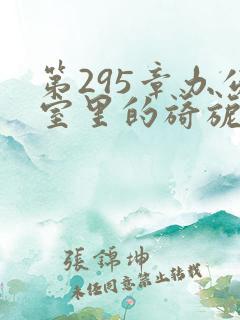 第295章办公
室里的旖旎
張錦坤
未经同意禁止转载